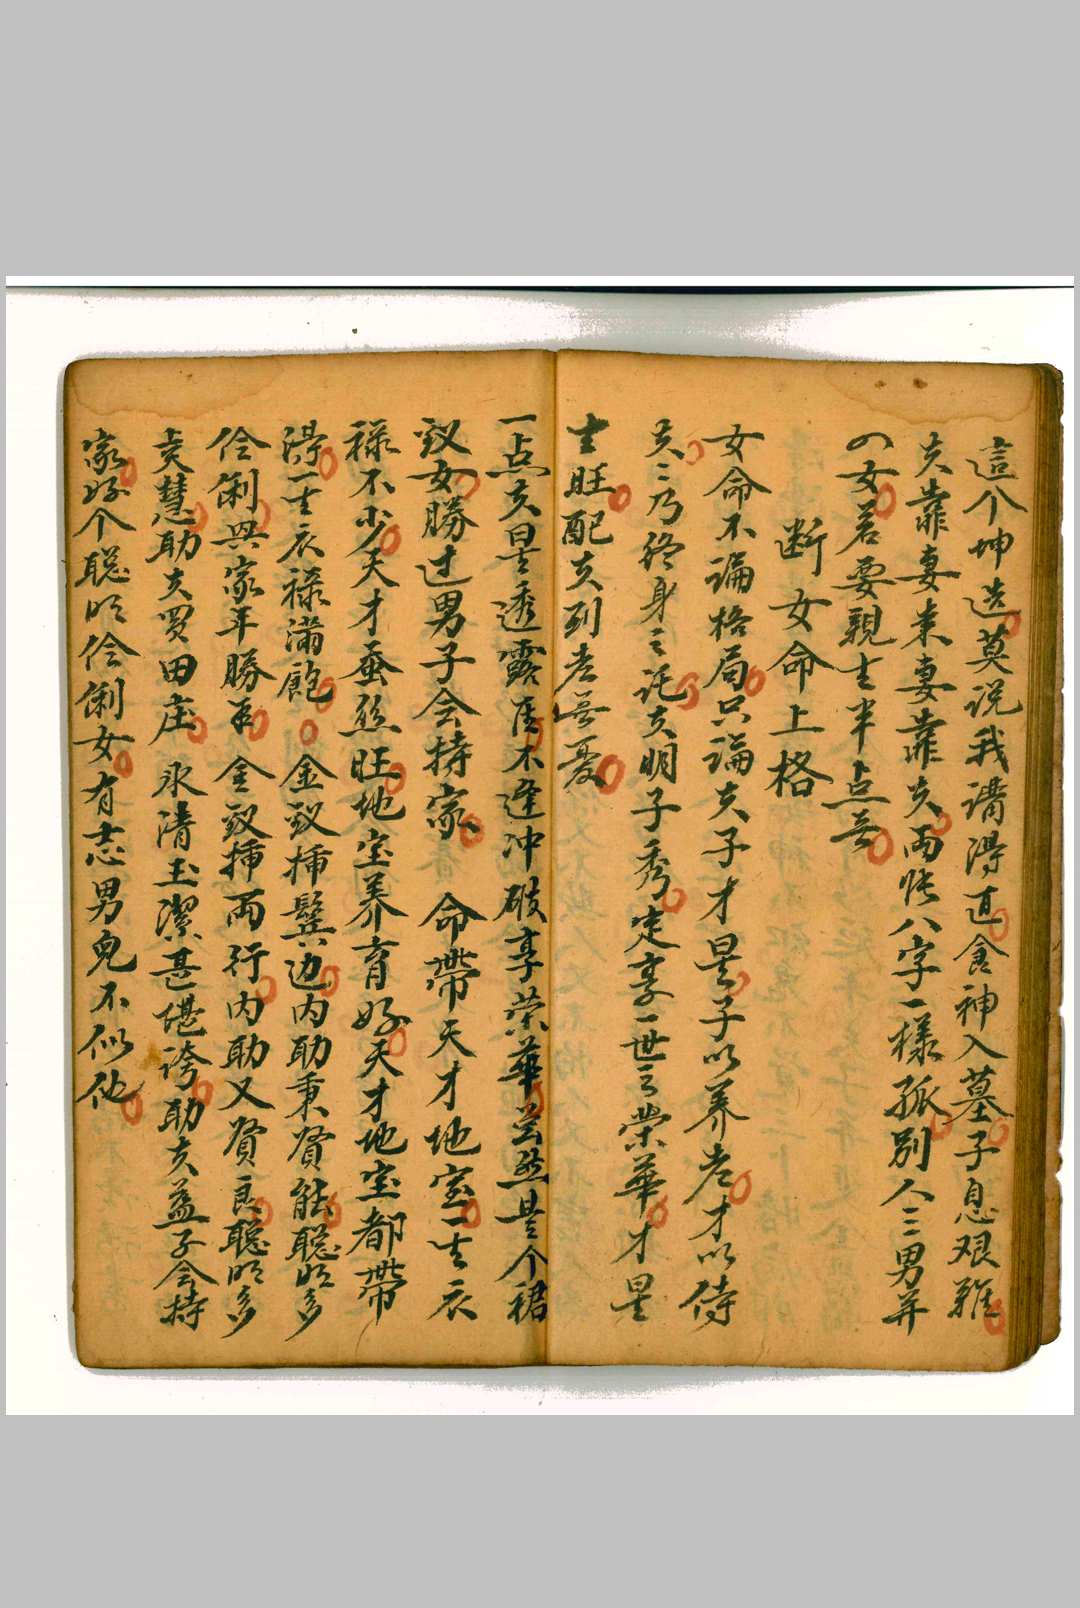 這个坤造莫说我講得直食神入墓子息艰難
夫靠妻来妻靠夫两帐八字一樣孤别人三男并
四女若要親生半点無
断女命上格
女命不論格局只論夫子才星子以养老才以侍
夫夫乃终身之託夫明子秀定享一世之榮華才星
生旺配夫到老無憂
一点夫星透露度不逢冲破享荣華並然是个裙
釵女勝过男子会持家 命帶天才地室一生衣
禄不少天才蚕丝旺地室养育好天才地室都帶
得一生衣禄满飽 金釵插鬓边内助秉賢能聪明多
伶俐興家年勝年 金釵插两行内助又賢良聪明多
贞慧助夫買田庄 冰清玉潔甚堪誇助夫益子会持
家好个聪明伶俐女有志男兒不似他